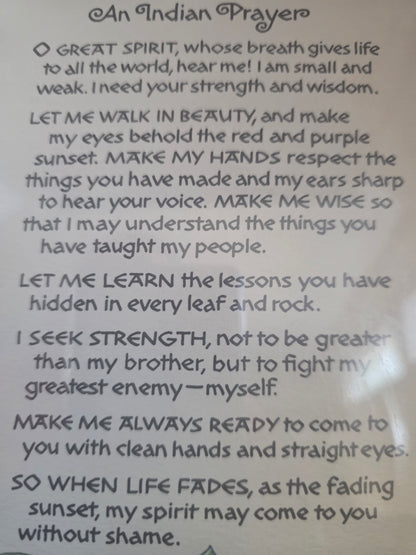 An Indian Prayer
O GREAT SPIRIT, whose breath gives life
to all the world, hear me! I am small and
weak. I need your strength and wisdom.
LET ME WALK IN BEAUTY, and make
my eyes behold the red and purple
sunset. MAKE MY HANDS respect the
things you have made and my ears sharp
to hear your voice. MAKE ME WISE so
that I may understand the things you
have taught my people.
LET ME LEARN the lessons you have
hidden in every leaf and rock.
I SEEK STRENGTH, not to be greater
than my brother, but to fight my
greatest enemy—myself.
MAKE ME ALWAYS READY to come to
you with clean hands and straight eyes.
SO WHEN LIFE FADES, as the fading
sunset, my spirit may come to you
without shame.